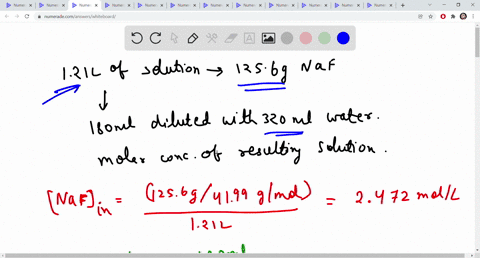 Numerade
numerade.com/answers/whiteboard/
1.21L of solution → 125.6g NaF
↓
180ml diluted with 320 ml water.
molar conc. of resulting solution.
[NaF]in = (125.6g/41.99 g/mol) / 1.21L = 2.472 mol/L